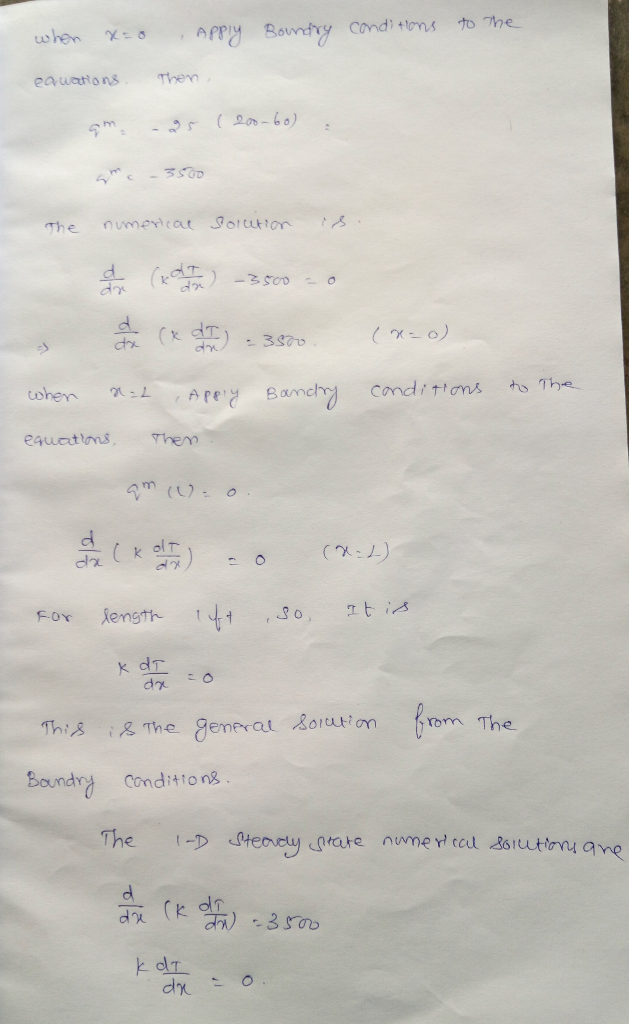 when x=0 , Apply Boundry conditions to The
equations. Then,
qm = -25 (200-60) =
qm = -3500
The numerical solution is.
d/dx (k dT/dx) -3500 = 0
⇒ d/dx (k dT/dx) = 3500. (x=0)
when x=L , Apply Boundry conditions to The
equations, Then.
qm (L) = 0.
d/dx (k dT/dx) = 0 (x=L)
For length 1 ft , so, It is
k dT/dx = 0
This is The general solution from The
Boundry conditions.
The 1-D Steady state numerical solutions are
d/dx (k dT/dx) = 3500
k dT/dx = 0.